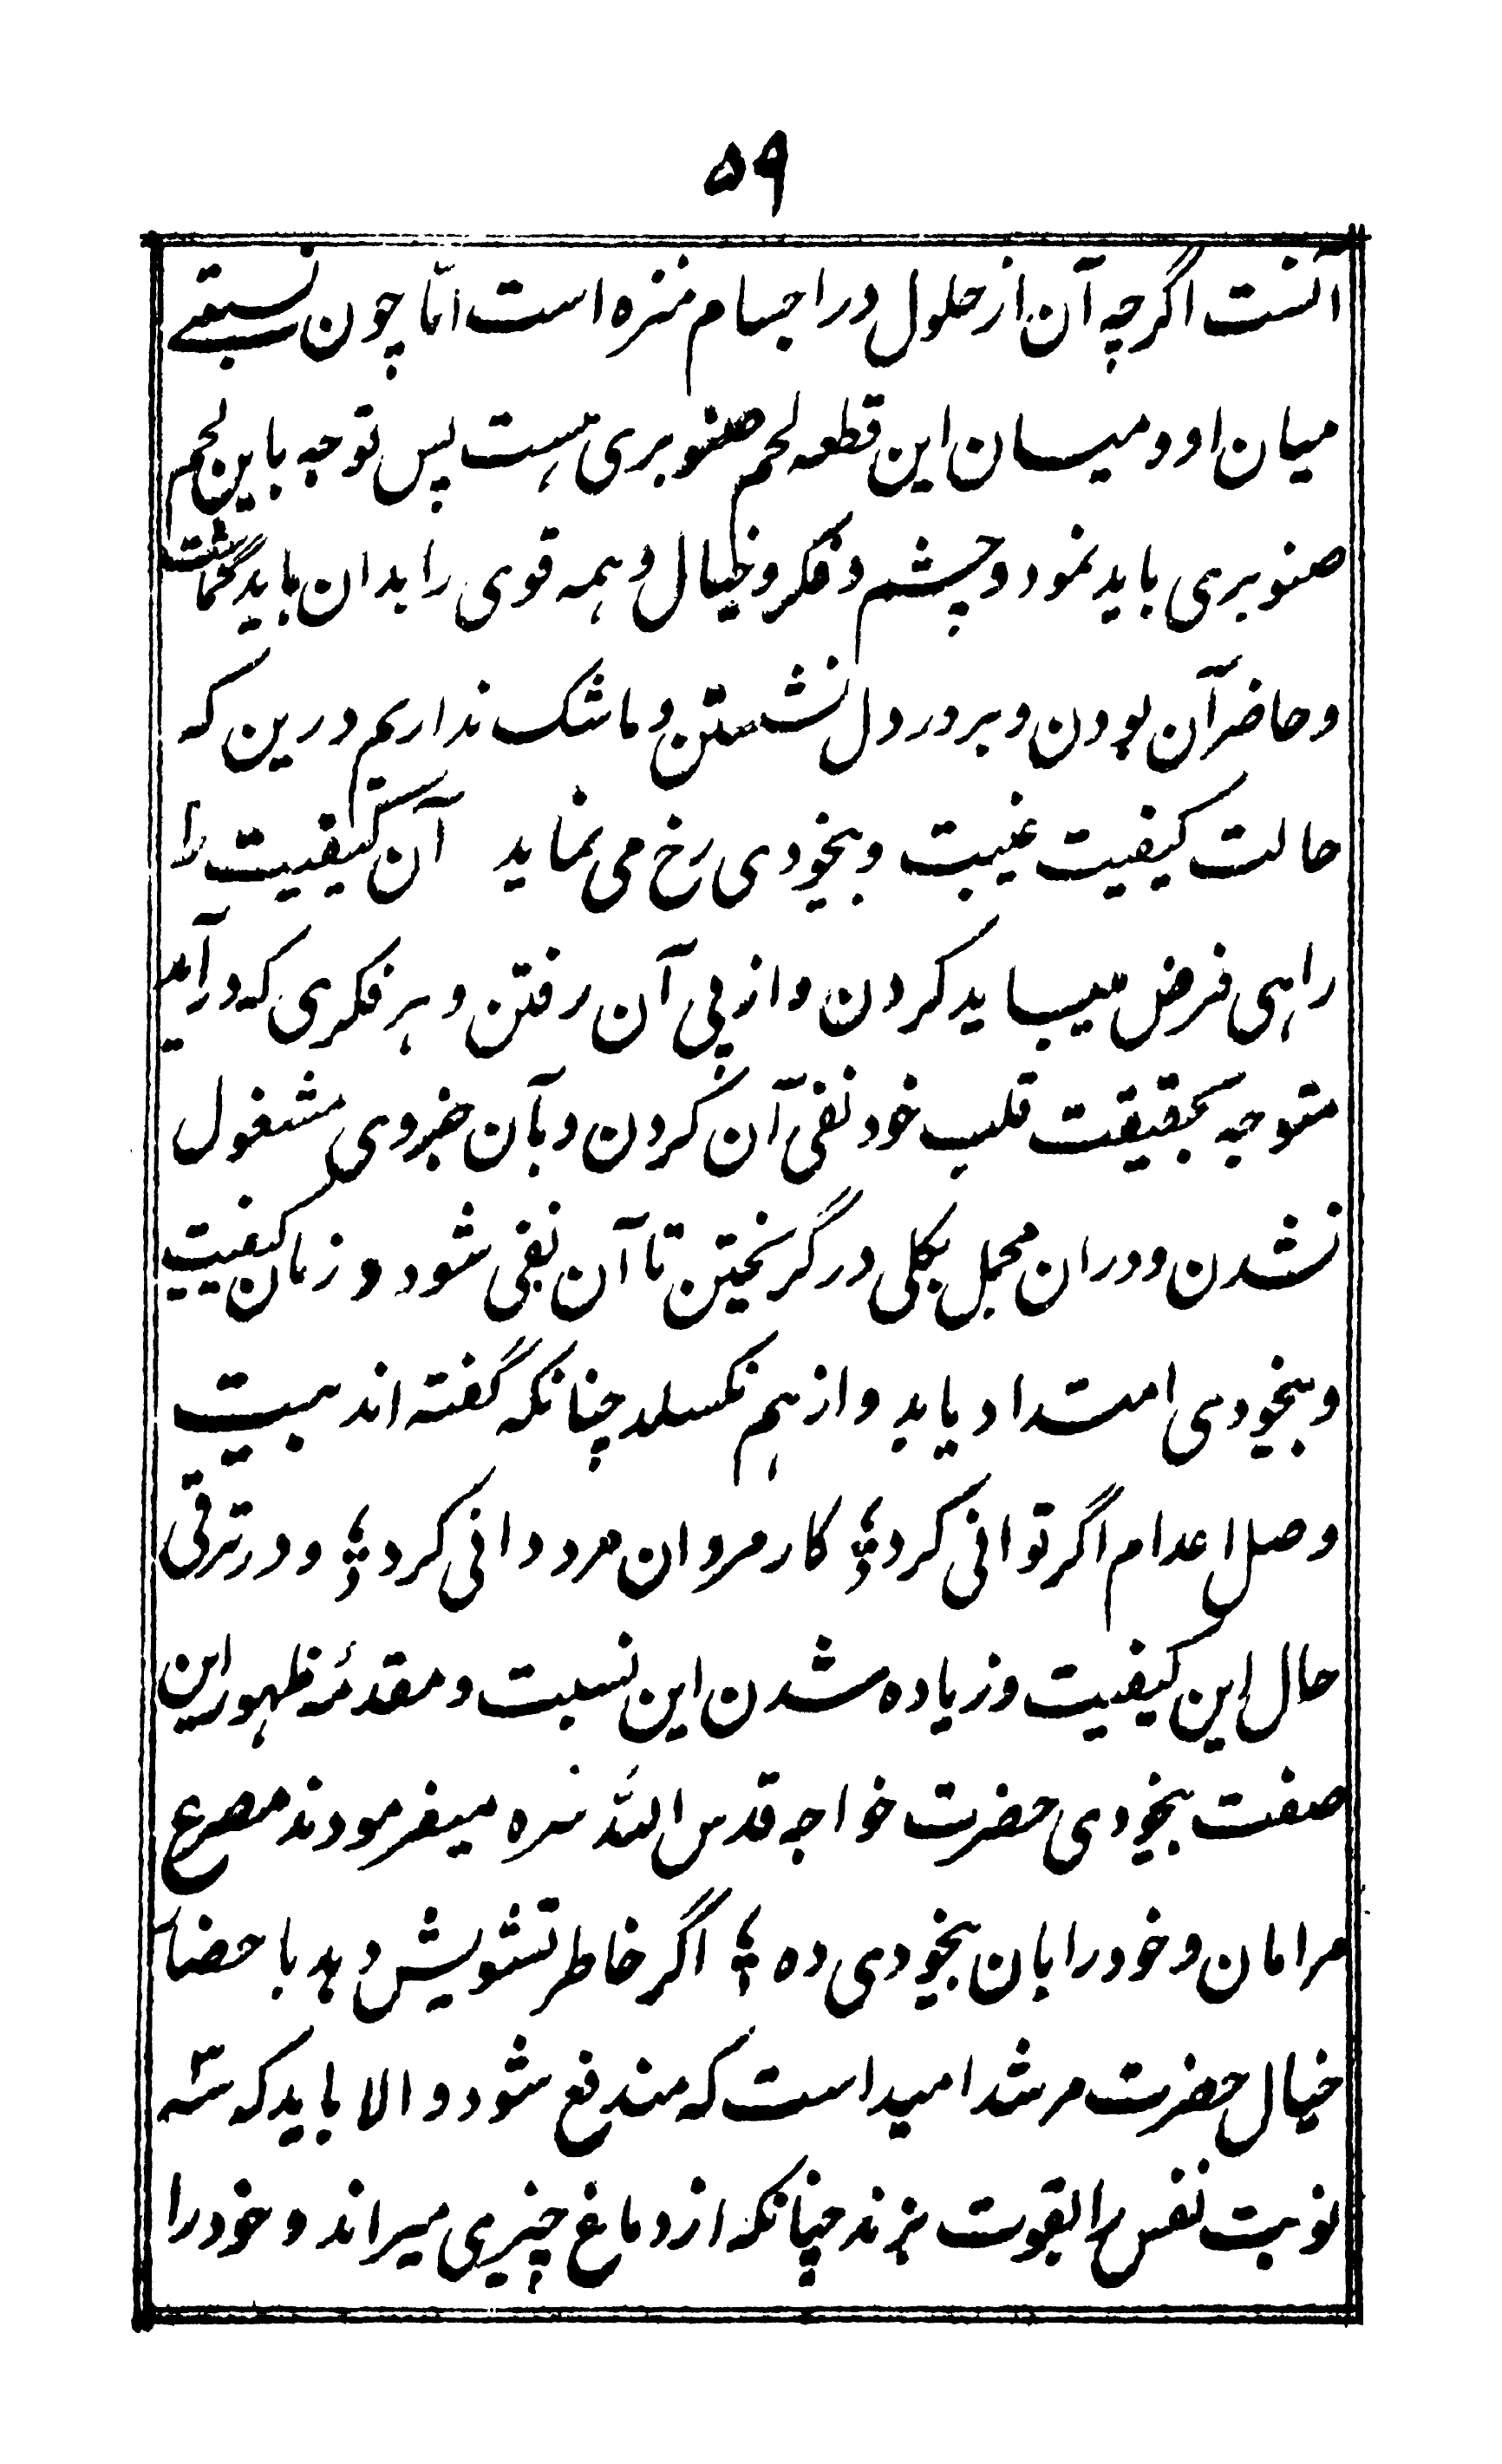 ۵۹
آنست اگرچه آن از حلول در اجسام منزه است امّا چون نسبتے
میان او و میسان این قطعه لحم صنوبری هست پس توجه باین لحم
صنوبری باید نمود و چشم و فکر و خیال و همه قوی را بدان باید گماشت
و حاضر آن بودن و بر در دل نشستن و ما شک نداریم درین که
حالت کیفیت غیبت و بیخودی رخ می نماید آن کیفیت را
راهی فرض میباید کردن و از پی آن رفتن و هر فکری که در آید
متوجه بحقیقت قلب خود نفی آن کردن و بآن جزوی مشغول
نشدن و دران مجمل بکلی در گریختن تا آن نفی شود و زمان کیفیت
و بیخودی امتداد یابد و از هم نکسلد چنانکه گفته اند بیت
وصل اعدام اگر توانی کرد ؛ کار مردان مرد دانی کرد ؛ و در ترقی
حال این کیفیت و زیاده شدن این نسبت و مقدمۂ ظهور این
صفت بیخودی حضرت خواجه قدس اللّٰه سره میفرمودند مصرع
مرا مان و خود را بان بیخودی ده ؛ اگر خاطر تشویش دهد باحضار
خیال حضرت مرشد امید است که مندفع شود و الا باید که سه
نوبت نفس را بقوت بزند چنانکه از دماغ چیزی میراند و خود را